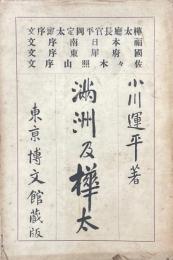 樺太廳長官平岡定太郎序文
福本日南序文
國府犀東序文
佐々木照山序文
小川運平著
滿洲及樺太
東京博文館藏版